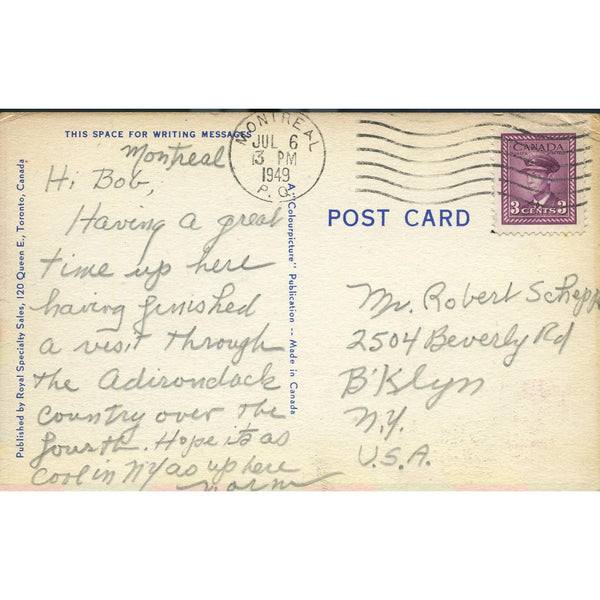 THIS SPACE FOR WRITING MESSAGES
Montreal
Hi Bob,
Having a great
time up here
having finished
a visit through
the Adirondack
country over the
fourth. Hope it's as
cool in NY as up here
Norm
Published by Royal Specialty Sales, 120 Queen E., Toronto, Canada
A "Colourpicture" Publication -- Made in Canada
MONTREAL
JUL 6
3 PM
1949
P. Q.
CANADA
3 CENTS 3
POST CARD
Mr. Robert Schepp
2504 Beverly Rd
B'Klyn
N.Y.
U.S.A.